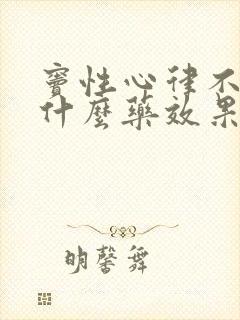 窦性心律不
什麼藥效果
明馨舞